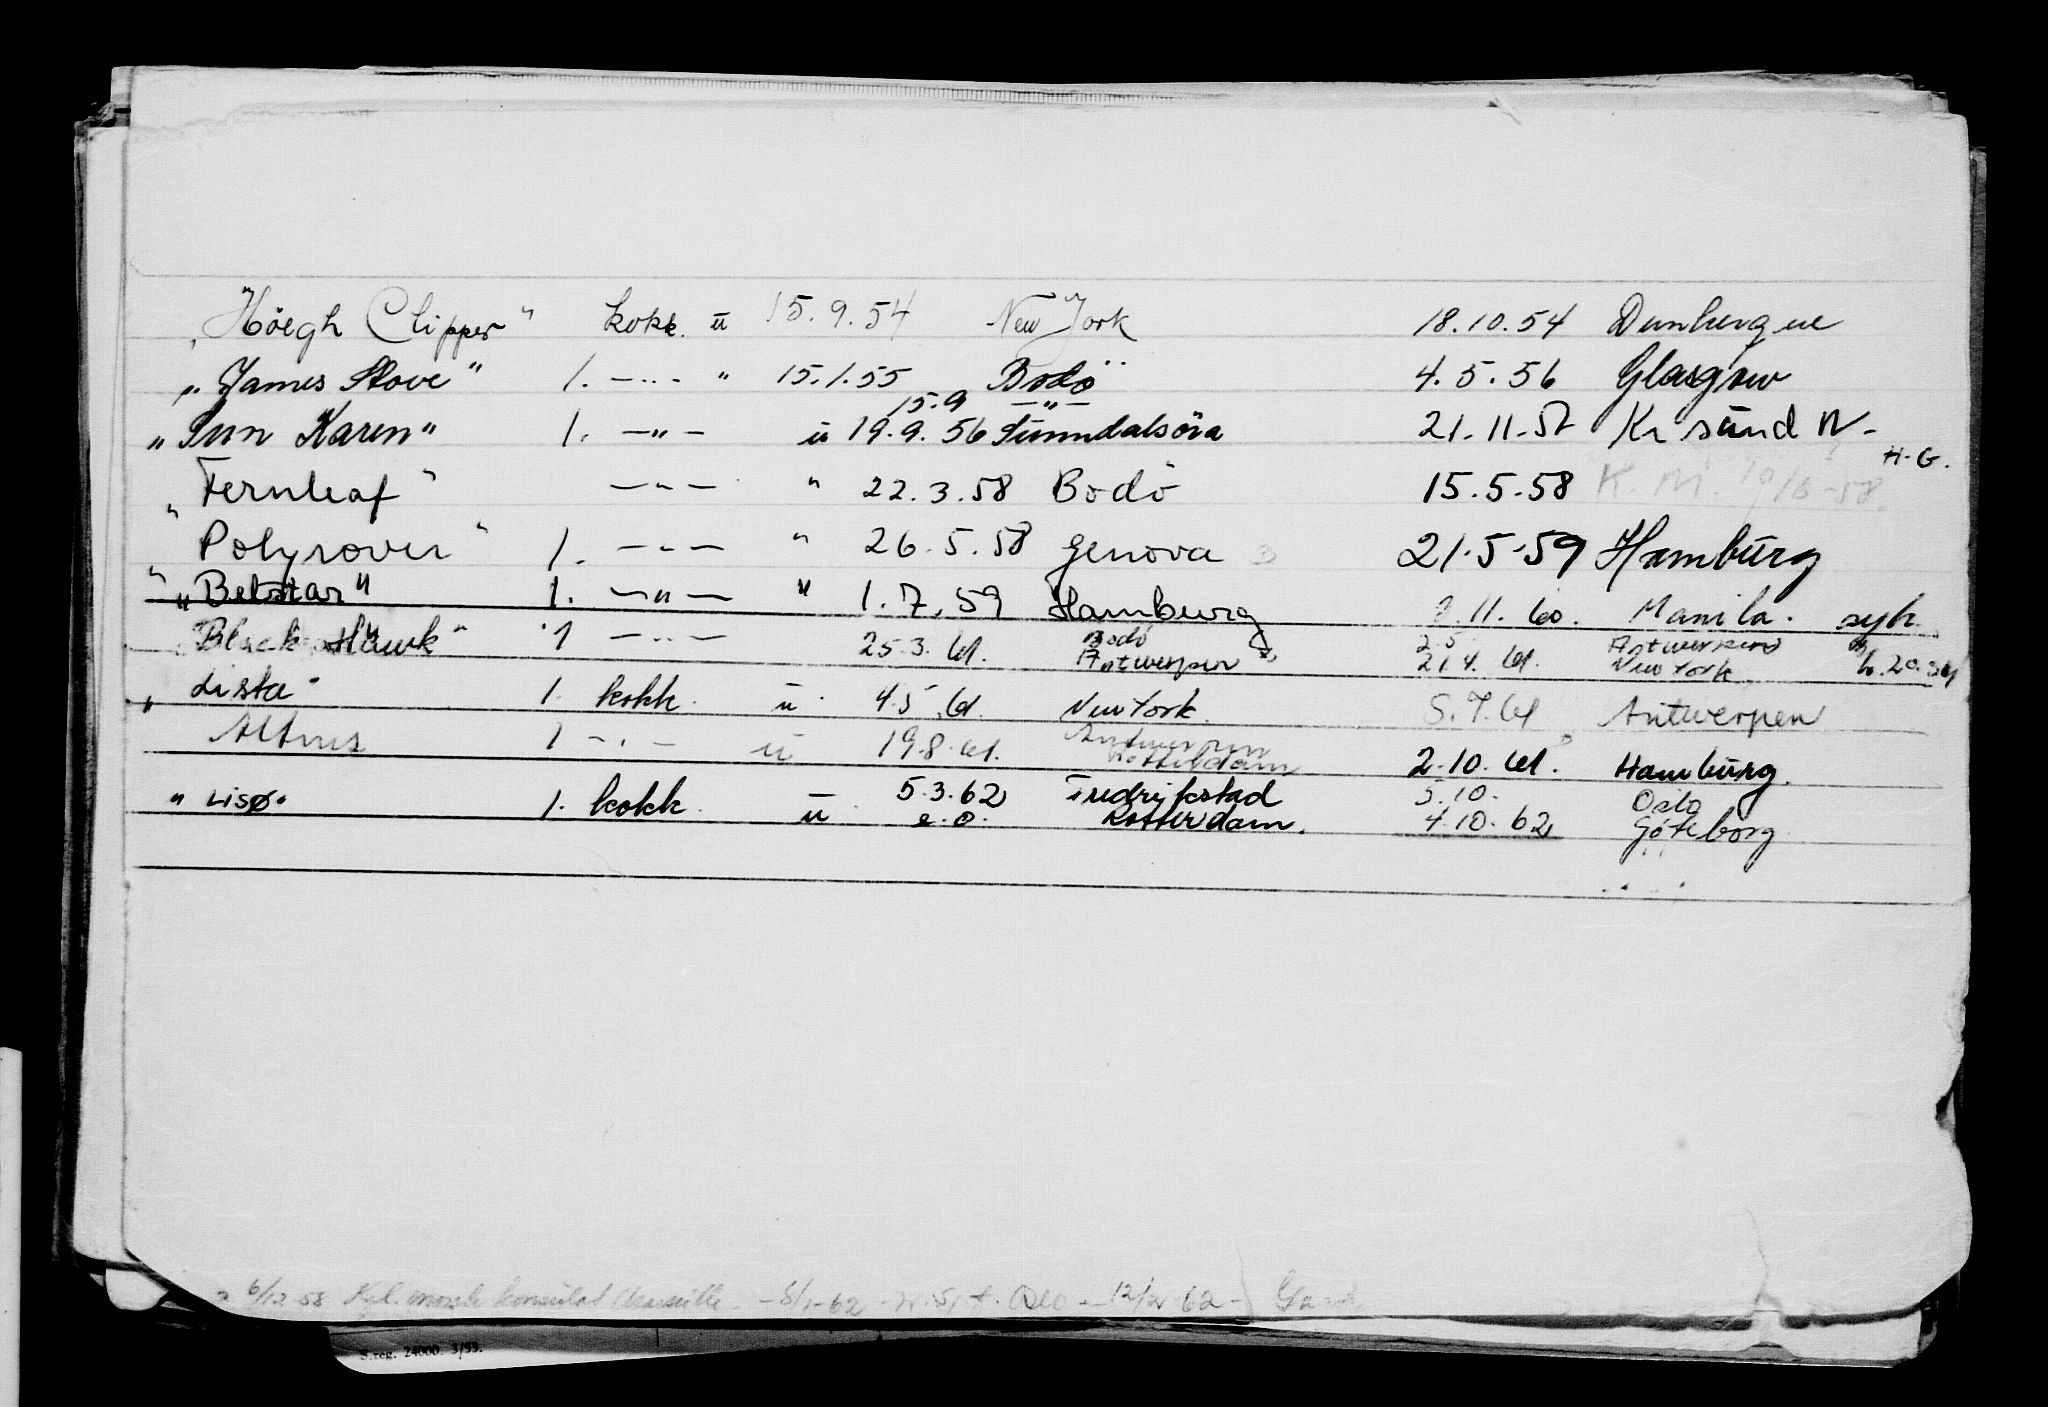 "Höegh Clipper" kokk. u 15.9.54 New York 18.10.54 Dunkerque
"James Stove" 1. —"— " 15.1.55 Bodö 4.5.56 Glasgow
15.9 —"—
"Sun Karen" 1. —"— u 19.9.56 Sunndalsöra 21.11.57 Kr sund N-
H.G.
"Fernleaf" —"— " 22.3.58 Bodö 15.5.58 K. M. 10/6-58.
"Polyrover" 1. —"— " 26.5.58 Genova 21.5.59 Hamburg
"Belstar" 1. —"— " 1.7.59 Hamburg .11.60. Manila. syk.
Bodö 2.5 Antwerpen
"Black Hawk" 1 —"— 25.3.61. Antwerpen 21.4.61. New York
"Lista" 1. kokk. u. 4.5.61. New York. 5.7.61 Antwerpen
1 —"— u 19.8.61. Antwerpen
Rotterdam 2.10.61. Hamburg.
"Lisø" 1. kokk. u. 5.3.62 Fredrikstad 5.10. Oslo
e.o. Rotterdam. 4.10.62 Göteborg
6/12 58 norske konsulat 62 Oslo 62
S.reg. 24000. 3/53.